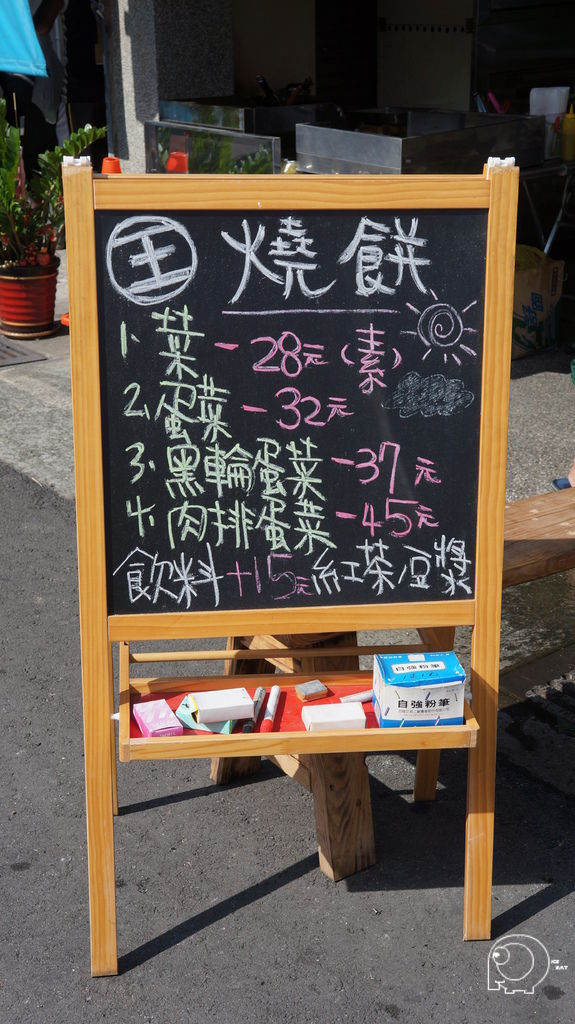 王 燒餅
1. 菜 - 28元 (素)
2. 蛋菜 - 32元
3. 黑輪蛋菜 - 37元
4. 肉排蛋菜 - 45元
飲料+15元 紅茶/豆漿
自強粉筆
自強粉筆